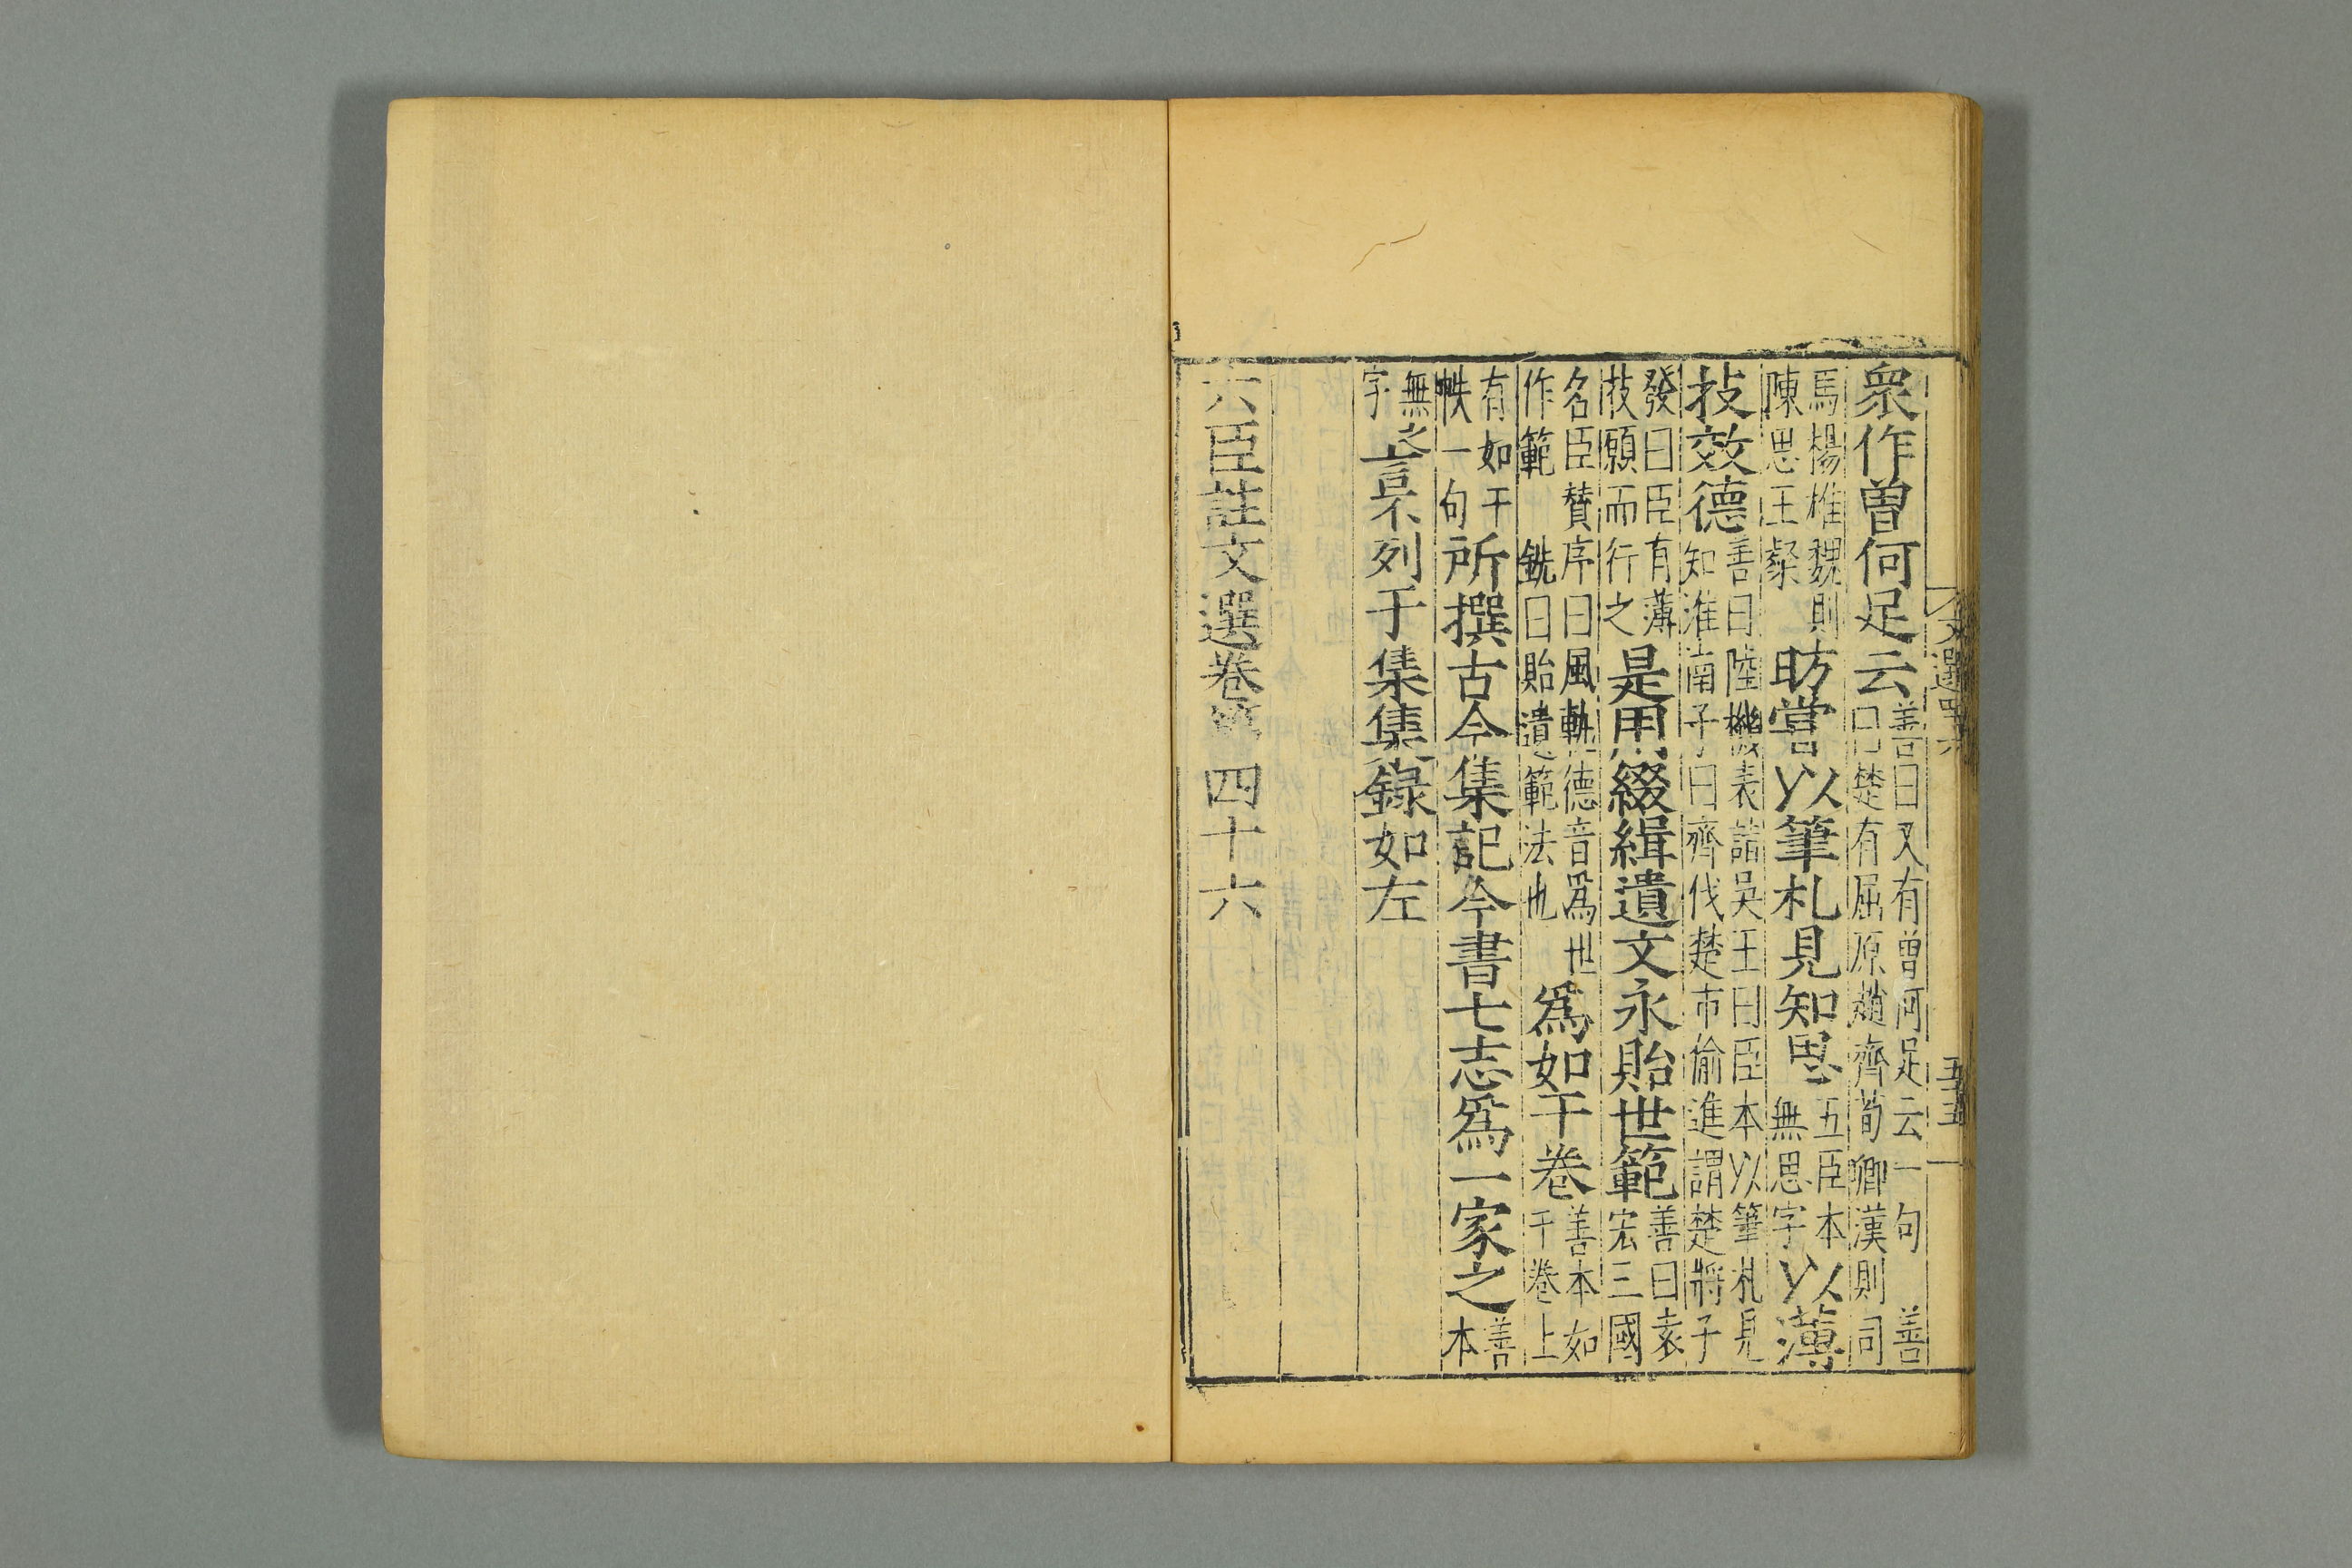 衆作曾何足云善曰又有曾何足云一句 善曰楚有屈原趙齊荀卿漢則司
馬楊惟魏則陳思王粲昉嘗以筆札見知思五臣本無思字以薄
技效德善曰陸機表詣吳王曰臣本以筆札見知淮南子曰齊伐楚市偷進謂楚將子
發曰臣有薄技願而行之是用綴緝遺文永貽世範善曰袁宏三國
名臣賛序曰風軌德音爲世作範 銑曰貽遺範法也爲如干卷善本如干巻上
有如干帙一句所撰古今集記今書七志爲一家之善本
無字之言不列于集集錄如左
六臣註文選卷第四十六